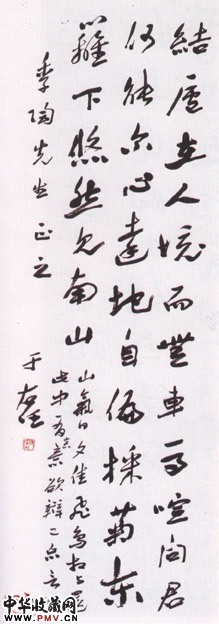 結廬在人境而無車馬喧問君
何能尔心遠地自偏採菊東
籬下悠然見南山
山氣日夕佳飛鳥相與還
此中有真意欲辯已忘言
季陶先生正之
于右任
中华收藏网
WWW.PMV.CN